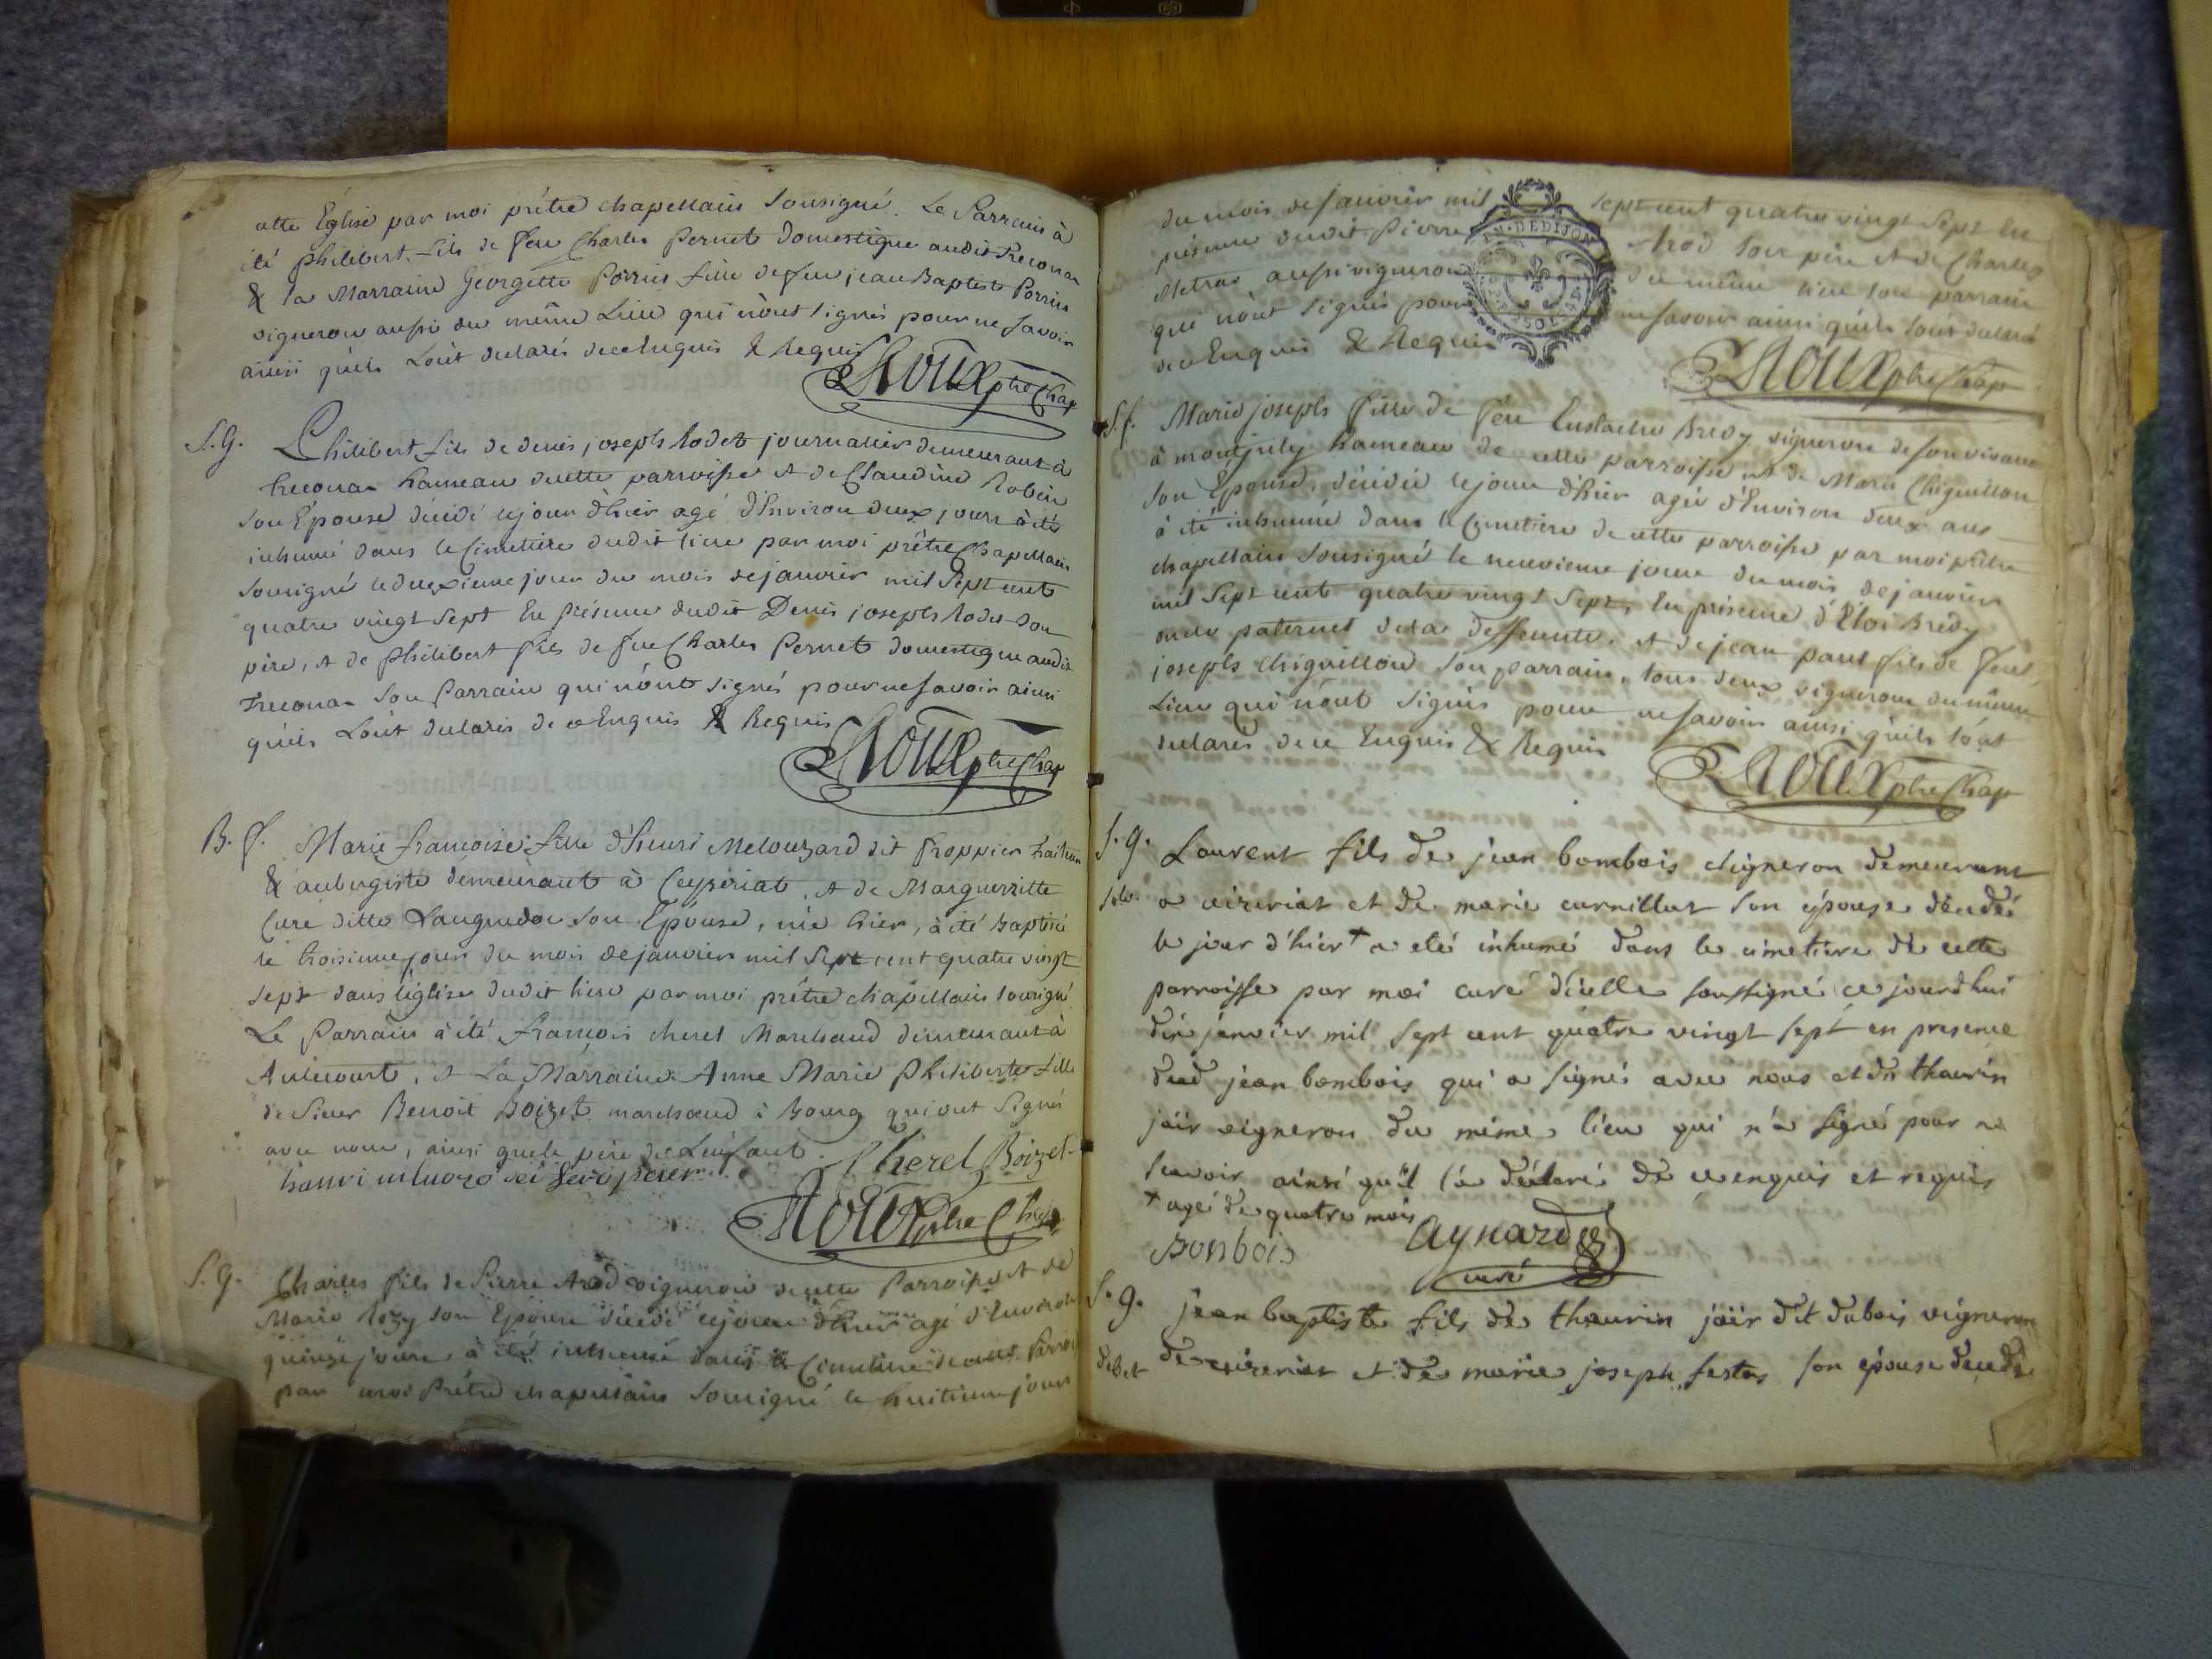 cette Église par moi prêtre chapellain Sousigné. Le Parrain à
été philibert fils de feu Charles Pernet domestique audit Treconas
& la Marraine Georgette Porrin fille de feu jean Baptiste Porrin
vigneron aussi du même Lieu qui n'ont signés pour ne savoir
ainsi qu'ils L'ont declarés de ce Enquis & Requis
Roux ptre Chap
S.G. Philibert fils de denis joseph Rodet journalier demeurant à
treconas hameau de cette parroisse et de Claudine Robin
son Épouse décédé le jour d'hier agé d'Environ deux jours à été
inhumé dans le Cimetière dudit lieu par moi prêtre Chapellain
sousigné le deuxieme jour du mois de janvier mil Sept cent
quatre vingt sept En présence dudit Denis joseph Rodet son
père, et de philibert fils de feu Charles Pernet domestique audit
Treconas son Parrain qui n'ont signés pour ne savoir ainsi
qu'ils L'ont declarés de ce Enquis & Requis
Roux ptre Chap
B. f. Marie françoise fille d'henri Melouzard dit froppier traiteur
& aubergiste demeurant à Ceyzeriat, et de Marguerritte
Curé ditte Languedoc son Épouse, née hier, à été Baptisée
le troisieme jour du mois de janvier mil Sept cent quatre vingt
sept dans l'églize dudit lieu par moi prêtre chapellain sousigné
Le Parrain à été françois cherel Marchand demeurant à
, et La Marraine Anne Marie philiberte fille
de Sieur Benoit Boizet marchand à Bourg qui ont Signés
avec nous, ainsi que le père de L'enfant. Cherel Boizet
hanri
Roux ptre Chap
S. G. Charles fils de Pierre Arod vigneron de cette Parroisse et de
Marie Rozy son Epouse décédé le jour d'hier agé d'Environ
quinze jours, à été inhumé dans le Cimetière de cette Parroisse
par moi Prêtre chapellain Sousigné le huitieme jour
du mois de janvier mil sept cent quatre vingt sept En
présence dudit Pierre Arod son père et de Charles
Metras aussi vigneron du même lieu son parrain
qui n'ont signés pour ne savoir ainsi qu'ils l'ont declaré
de ce Enquis & Requis
GEN. DE DIJON
Roux ptre Chap
S. f. Marie joseph fille de feu Eustache Bredy vigneron de son vivant
à montjuly hameau de cette parroisse, et de Marie Chiguillon
son Épouse, décédée le jour d'hier agée d'Environ deux ans
à été inhumée dans le Cimetière de cette parroisse par moi prêtre
chapellain Sousigné le neuvieme jour du mois de janvier
mil Sept cent quatre vingt Sept, En présence d'Eloi Bredy
oncle paternel de la deffunte, et de jean paul fils de feu
joseph chiguillon son parrain, tous deux vignerons du même
Lieu qui n'ont signés pour ne savoir ainsi qu'ils l'ont
declarés de ce Enquis & Requis
Roux ptre Chap
S. g. Laurent fils de jean bombois vigneron demeurant
a ceizeriat et de marie curnillat son épouse décédé
le jour d'hier + a eté inhumé dans le cimetiere de cette
parroisse par moi curé d'icelle soussigné ce jourd'hui
dix janvier mil sept cent quatre vingt sept en presence
dud jean bombois qui a signé avec nous et de thaurin
jair vigneron du même lieu qui n'a signé pour ne
scavoir ainsi qu'il l'a déclaré de ce enquis et requis
+ agé de quatre mois
Bonbois aynard
curé
S. g. jean baptiste fils de thaurin jair dit dubois vigneron
de ceizeriat et de marie joseph festas son épouse decedé